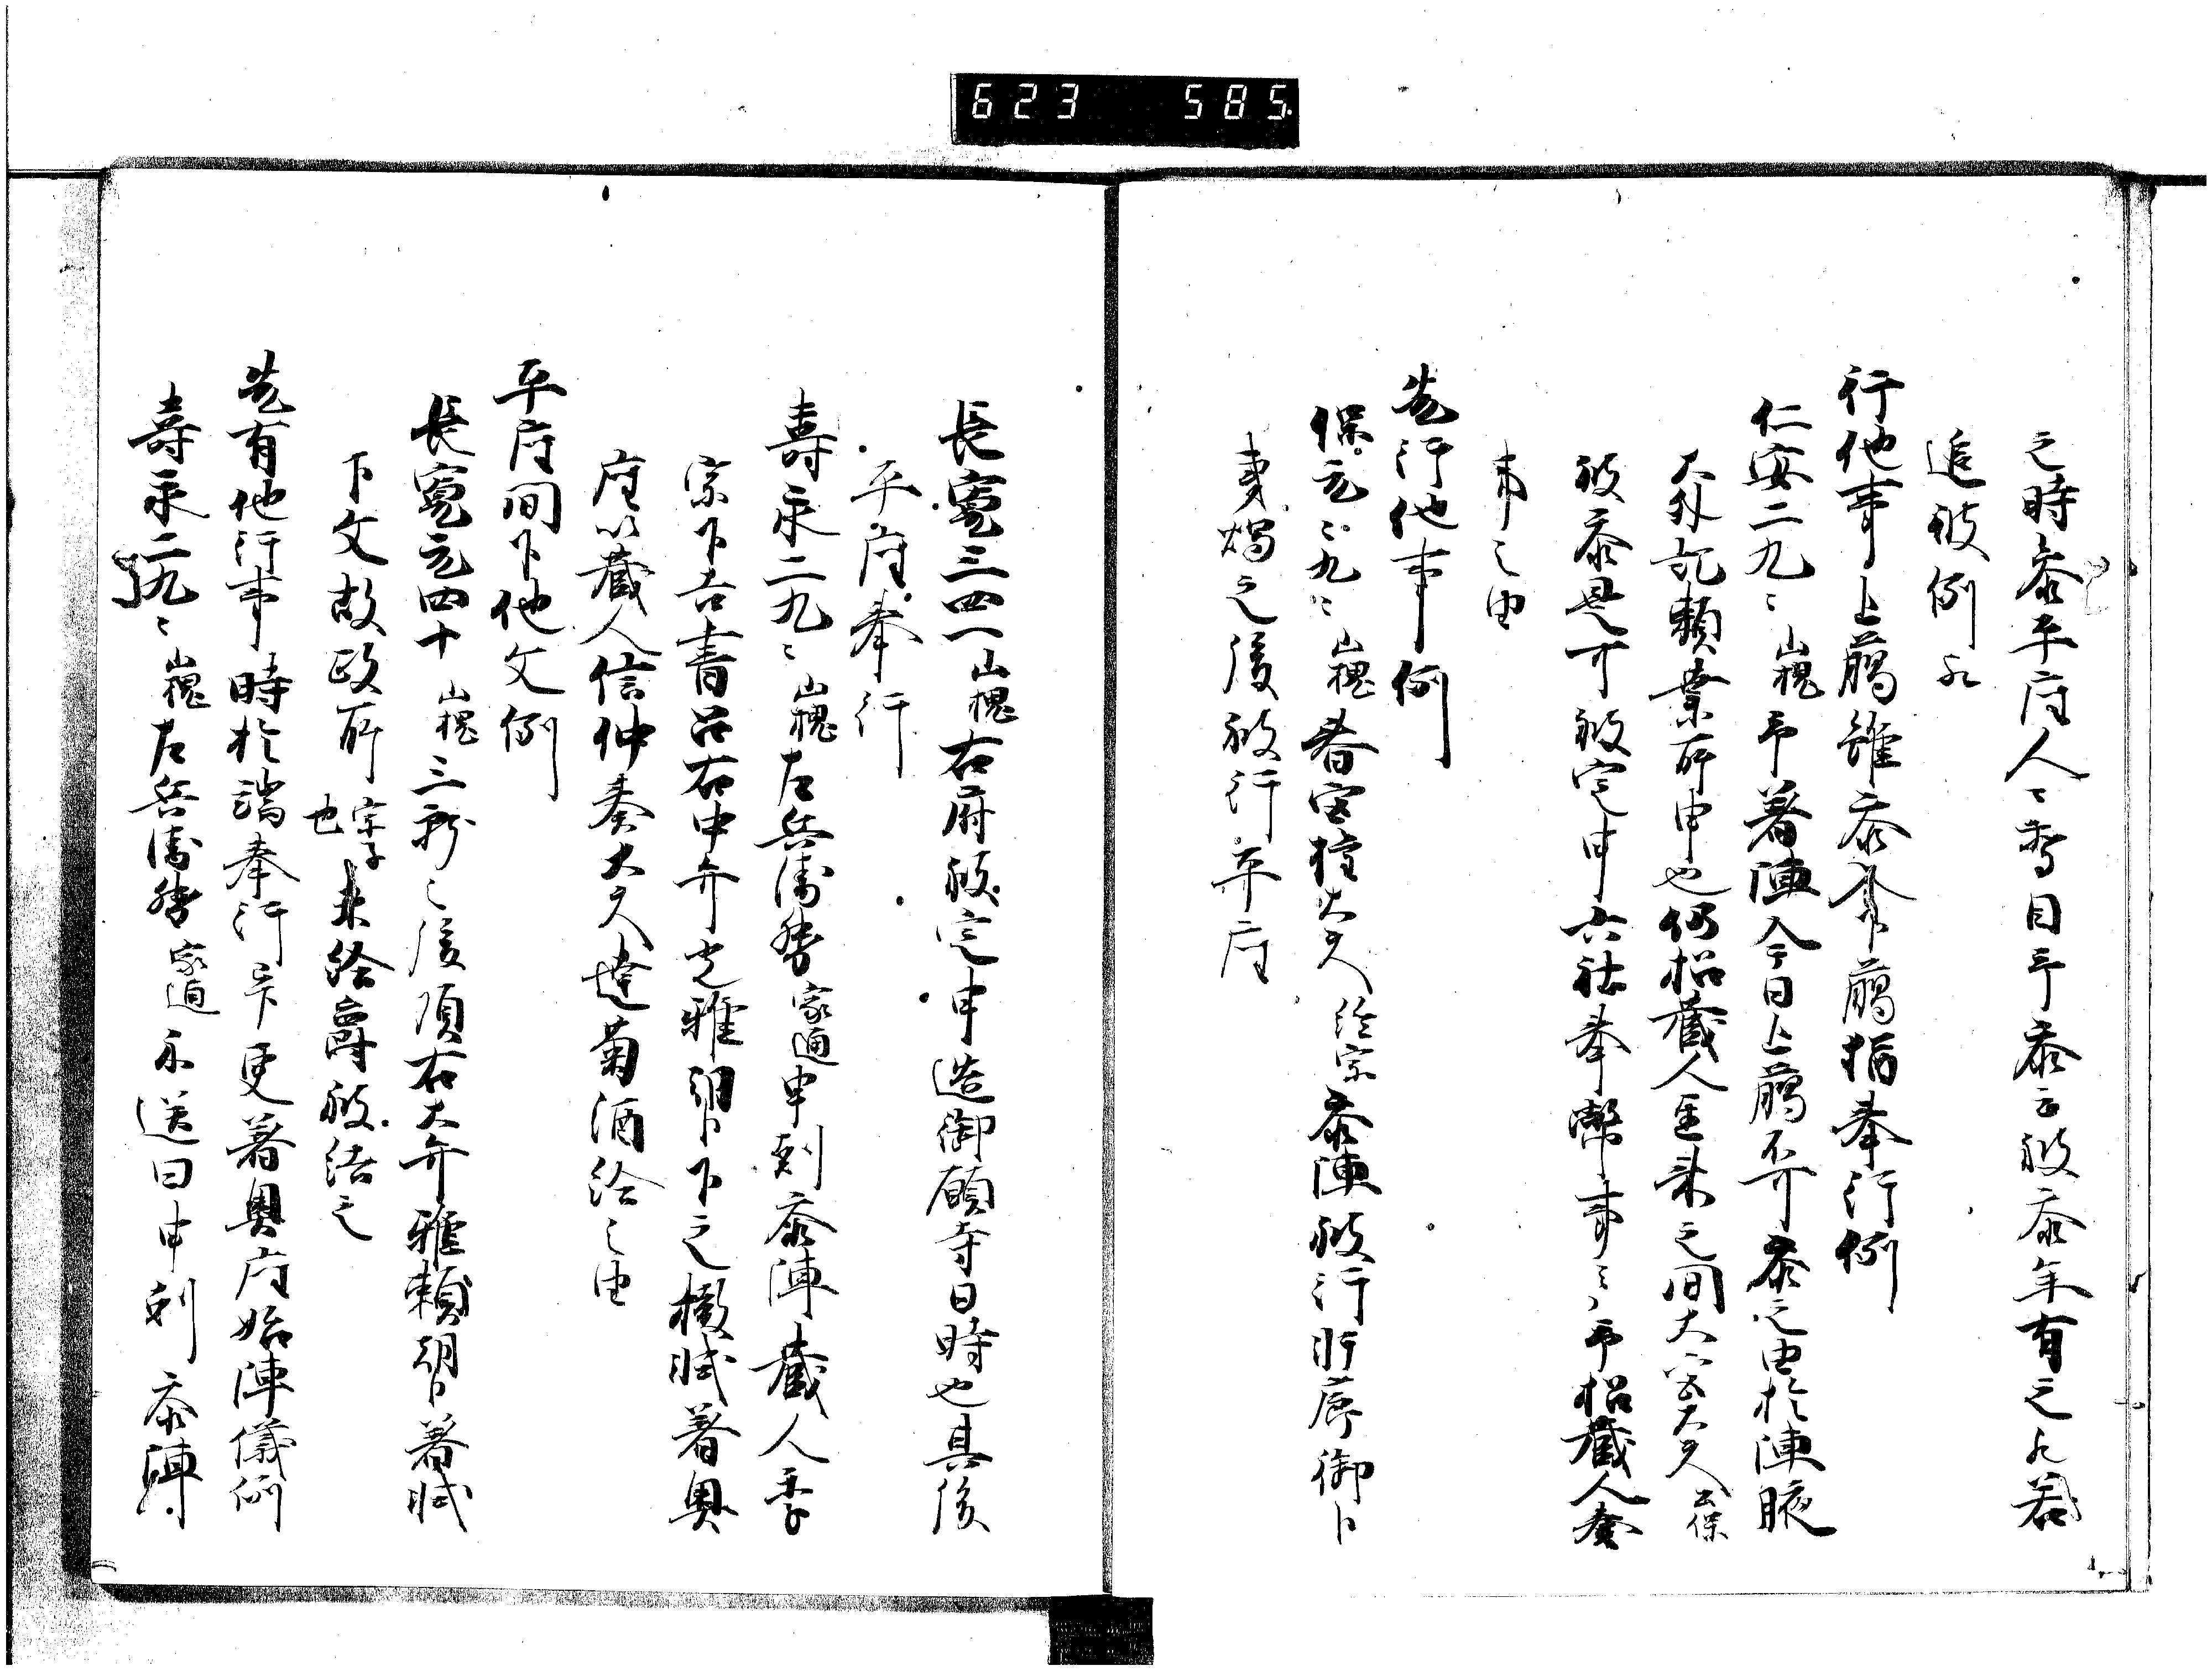 623 585
之時参平座人々当日平参云被参年有之凡若
追彼例凡
行他事上﨟雖参今下﨟猶奉行例
仁安二九々山槐予著陣今日上﨟不可参之由於陣腋
大外記頼業所申也仍招蔵人重来之間大宮大夫公保
被参畢可被定申六社奉幣事之予招蔵人奏
事之由
先行他事例
保元々九々山槐春宮権大夫経宗参陣被行軒廊御卜
事帰之後被行平座
長寛三四一山槐右府被定申造御願寺日時也其後
平座奉行
寿永二九々山槐左兵衛督家通申刻参陣蔵人季
宗下吉書召右中弁光雅朝臣下之撤膝著奥
座以蔵人信仲奏大夫達菊酒給之由
平座間下他文例
長寛元四十山槐三献之後頃右大弁雅頼朝臣著膝
下文故政所宗子也未給爵被結之
先有他行事時於端奉行了更著奥座始陣儀例
寿永二九々山槐左兵衛督家通示送曰申刻参陣